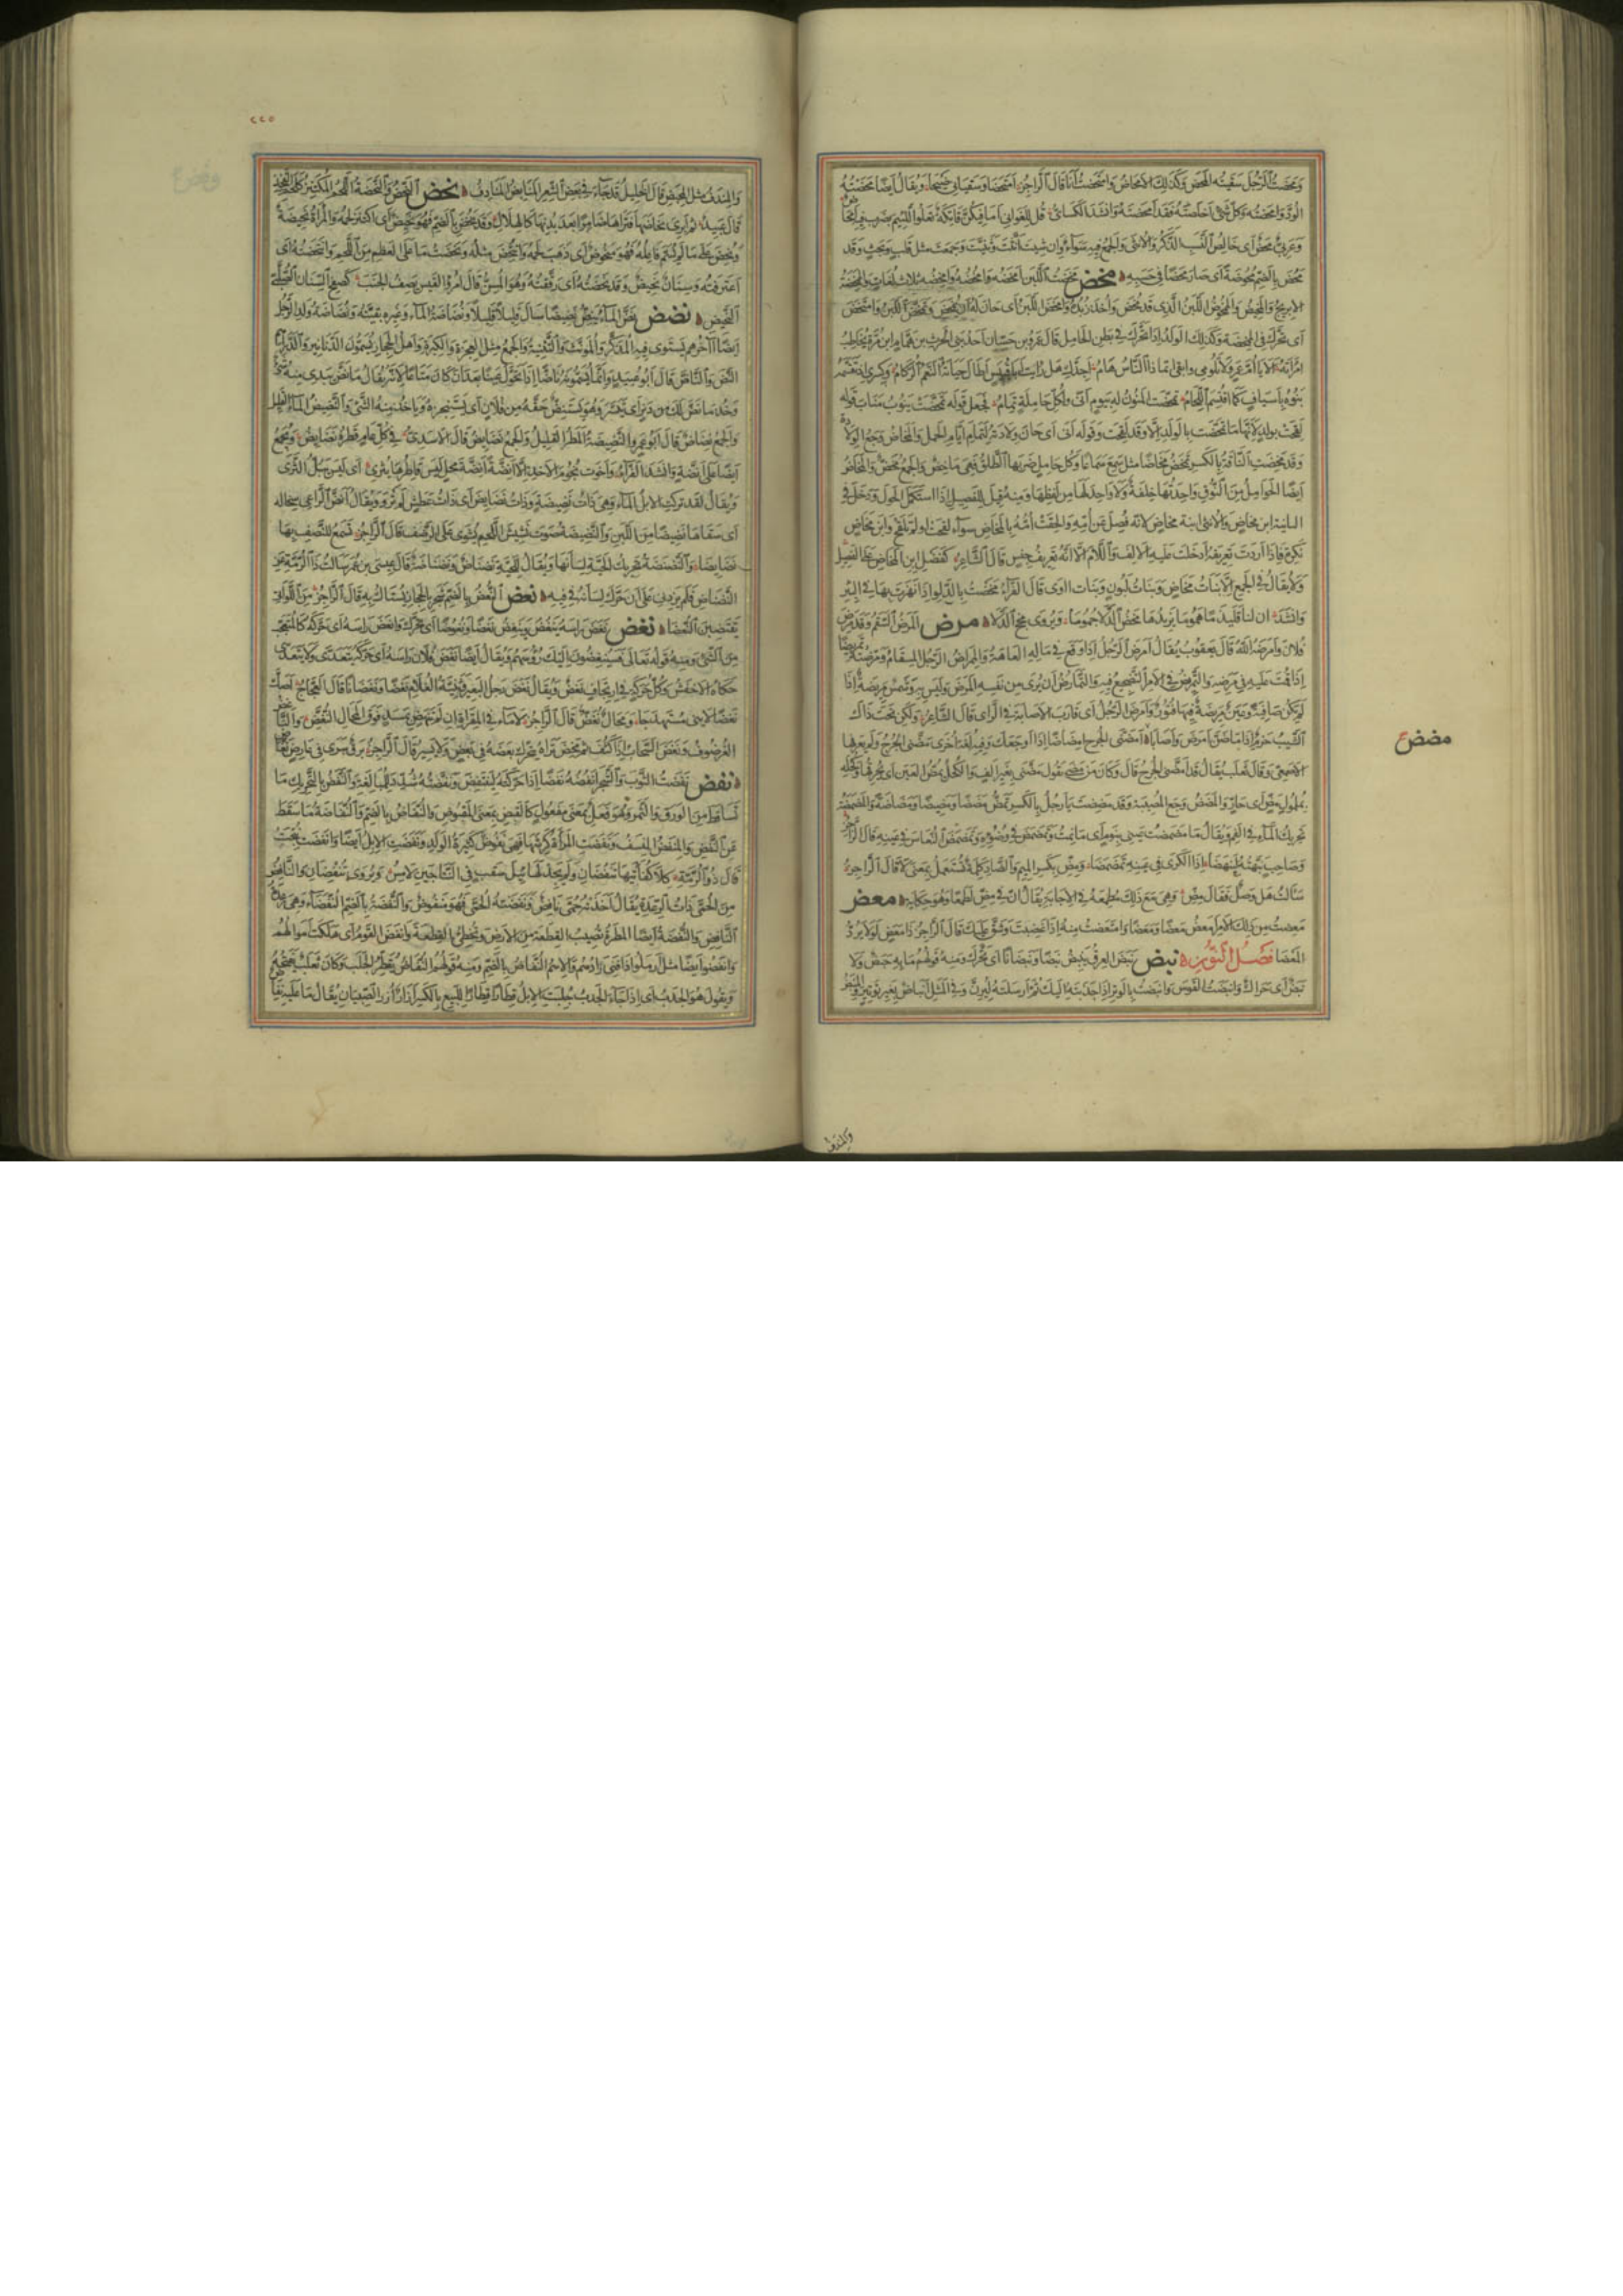 ومحضت الرجل سقيته المحض وكذلك الامحاض وامتحضت انا قال الراجز امتحضا وسقياني ضيحا ويقال ايضا محضته
الود وامحضته وكل شئ اخلصته فقد امحضته وانشد الكسائي قل للغواني اما فيكن فاتكة تعلو اللئيم بضرب فيه امحاض
وعربي محض اى خالص النسب الذكر والانثى والجمع فيه سواء وان شئت انثت وثنيت وجمعت مثل قلب وبحت وقد
محض بالضم محوضة اى صار محضا فى حسبه مخض مخضت اللبن امخضه وامخضه وامخضه ثلاث لغات والممخضة
الابريج والمخيض والممخوض اللبن الذى قد مخض واخذ زبده وامخض اللبن اى حان له ان يمخض وتمخض اللبن وامتخض
اى تحرك فى الممخضة وكذلك الولد اذا تحرك فى بطن الحامل قال عمرو بن حسان احد بنى الحرث بن همام بن مرة يخاطب
امرأته الا يا ام عمرو لا تلومى وابقى انما ذا الناس هام اجدك هل رايت ابا قبيس اطال حياته النعم الركام وكسرى اذ تقسمه
بنوه باسياف كما اقتسم اللحام تمخضت المنون له بيوم انى ولكل حاملة تمام فجعل قوله تمخضت ينوب مناب قوله
لقحت بولد لانها ما تمخضت بالولد الا وقد لقحت وقوله انى اى حان ولادته لتمام ايام الحمل والمخاض وجع الولادة
وقد مخضت الناقة بالكسر تمخض مخاضا مثل سمع سماعا وكل حامل ضربها الطلق فهى ماخض والجمع مخض والمخاض
ايضا الحوامل من النوق واحدتها خلفة ولا واحد لها من لفظها ومنه قيل للفصيل اذا استكمل الحول ودخل فى
الثانية ابن مخاض والانثى ابنة مخاض لانه فصل عن امه والحقت امه بالمخاض سواء لقحت او لم تلقح وابن مخاض
نكرة فاذا اردت تعريفه ادخلت عليه الالف واللام الا انه تعريف جنس قال الشاعر كفضل ابن المخاض على الفصيل
ولا يقال فى الجمع الا بنات مخاض وبنات لبون وبنات اوى قال الفراء مخضت بالدلو اذا نهزت بها فى البئر
وانشد ان لنا قليذما هموما يزيدها مخض الدلا جموما ويروى مخج الدلا مرض المرض السقم وقد مرض
فلان وامرضه الله قال يعقوب يقال امرض الرجل اذا وقع فى ماله العاهة والممراض الرجل المسقام ومرضته تمريضا
اذا قمت عليه فى مرضه والتمريض فى الامر التضجيع فيه والتمارض ان يرى من نفسه المرض وليس به وشمس مريضة اذا
لم تكن صافية وعين مريضة فيها فتور وامرض الرجل اى قارب الاصابة فى الراى قال الشاعر ولكن تحت ذاك
الشيب حزم اذا ما ظن امرض او اصابا مضض امضنى الجرح امضاضا اذا اوجعك وفيه لغة اخرى مضنى الجرح ولم يعرفها
الاصمعى وقال ثعلب يقال قد امضنى الجرح قال وكان من مضى يقول مضنى بغير الف والكحل يمض العين اى يحرقها وكحله
بملمول مض اى حار والمضض وجع المصيبة وقد مضضت يا رجل بالكسر تمض مضضا ومضيضا ومضاضة والمضمضة
تحريك الماء فى الفم ويقال ما مضمضت عينى بنوم اى ما نمت وتمضمض فى وضوئه وتمضمض النعاس فى عينه قال الراجز
وصاحب نبهته لينهضا اذا الكرى فى عينه تمضمضا ومض بكسر الميم والضاد كلمة تستعمل بمعنى لا قال الراجز
سالت هل وصل فقال مض وهى مع ذلك مطمعة فى الاجابة يقال ان فى مض لطمعا وهو حكاية معض
معضت من ذلك الامر امعض معضا ومعضا وامتعضت منه اذا غضبت وشق عليك قال الراجز ذا معض لولا يرد
المعضا فصل النون نبض نبض العرق ينبض نبضا ونبضانا اى تحرك ومنه قولهم ما به حبض ولا
نبض اى حراك وانبضت القوس وانبضت بالوتر اذا جذبته اليك ثم ارسلته ليرن وفى المثل انباض بغير توتير والمنبض
مضض
والمندف
٢٢٥
والمندف مثل المحبض قال الخليل قد جاء فى بعض الشعر المنابض المنادف نحض النحض والنحضة اللحم المكتنز كلحم الفخذ
قال عبيد ثم ابرى نحاضها فتراها ضامرا بعد بدنها كالهلال وقد نحض بالضم فهو نحيض اى اكتنز لحمه والمرأة نحيضة
ونحض على ما لم يسم فاعله فهو منحوض اى ذهب لحمه وانتحض مثله ونحضت ما على العظم من اللحم وانتحضته اى
اعترقته وسنان نحيض وقد نحضته اى رققته وهو المسن قال امرؤ القيس يصف الجنب كصفح السنان الصلبى
النحيض نضض نض الماء ينض نضيضا سال قليلا قليلا ونضاضة الماء وغيره بقيته ونضاضة ولد الرجل
ايضا آخرهم يستوى فيه المذكر والمؤنث والتثنية والجمع مثل العجزة والكبرة واهل الحجاز يسمون الدنانير والدراهم
النض والناض قال ابو عبيد وانما يسمونه ناضا اذا تحول عينا بعد ان كان متاعا لانه يقال ما نض بيدى منه شئ
وخذ ما نض لك من دين اى تيسر وهو يستنض حقه من فلان اى يستنجزه وياخذ منه الشئ والنضيض الماء القليل
والجمع نضاض قال ابو عمرو النضيضة المطر القليل والجمع نضايض قال الاسدى فى كل عام قطره نضايض ويجمع
ايضا على انضة وانشد الفراء واخوت نجوم الاخذ الا انضة انضة محل ليس قاطرها يثرى اى ليس يبل الثرى
ويقال لقد تركت الابل الماء وهى ذات نضيضة وذات نضايض اى ذات عطش لم ترو ويقال انض الراعى سخاله
اى سقاها نضيضا من اللبن والنضيضة صوت نشيش اللحم يشوى على الرضف قال الراجز تسمع للرضف بها
نضايضا والنضنضة تحريك الحية لسانها ويقال للحية نضناض ونضناضة قال عيسى بن عمر سالت ذا الرمة عن
النضناض فلم يزدنى على ان حرك لسانه فى فيه نعض النعض بالضم شجر بالحجاز يستاك به قال الراجز من اللواتى
يقتضبن النعضا نغض نغض راسه ينغض وينغض نغضا ونغوضا اى تحرك وانغض راسه اى حركه كالمتعجب
من الشئ ومنه قوله تعالى فسينغضون اليك رؤسهم ويقال ايضا نغض فلان راسه اى حركه يتعدى ولا يتعدى
حكاه الاخفش وكل حركة فى ارتجاف نغض ويقال نغض رحل البعير وثنية الغلام نغضا ونغضانا قال العجاج اصك
نغضا لا ينى مستهدجا ومحال نغض قال الراجز لا ماء فى المقراة ان لم تنهض بمسد فوق المحال النغض والناغض
الغرضوف ونغض السحاب اذا كثف ثم مخض تراه يتحرك بعضه فى بعض ولا يسير قال الراجز برق سرى فى عارض نغاض
نفض نفضت الثوب والشجر انفضه نفضا اذا حركته لينتفض ونفضته شدد للمبالغة والنفض بالتحريك ما
تساقط من الورق والثمر وهو فعل بمعنى مفعول كالقبض بمعنى المقبوض والنفاض بالضم والنفاضة ما سقط
عن النفض والمنفض المنسف ونفضت المرأة كرشها فهى نفوض كثيرة الولد ونفضت الابل ايضا وانفضت نتجت
قال ذو الرمة كلا كفأتيها تنفضان ولم يجد لها ثيل سقب فى النتاجين لامس ويروى تنفضان والنافض
من الحمى ذات الرعدة يقال اخذته حمى نافض ونفضته الحمى فهو منفوض والنفضة بالضم النفضاء وهى رعدة
النافض والنفضة ايضا المطرة تصيب القطعة من الارض وتخطئ القطعة وانفض القوم اى هلكت اموالهم
وانفضوا ايضا مثل ارملوا اذا فنى زادهم والاسم النفاض بالضم ومنه قولهم النفاض يقطر الجلب وكان ثعلب يفتحه
ويقول هو الجدب اى اذا جاء الجدب جلبت الابل قطارا قطارا للبيع بالكسر ازار من ازر الصبيان يقال ما عليه نفاض